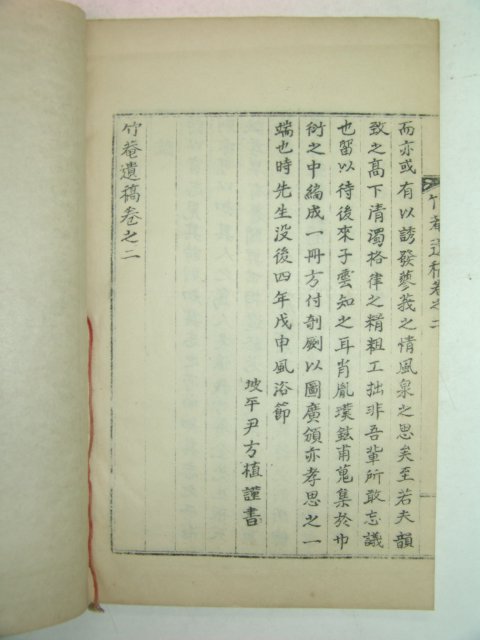 而亦或有以誘發蓼莪之情風泉之思矣至若夫韻
致之高下清濁格律之精粗工拙非吾輩所敢忘議
也留以待後來子雲知之耳肖胤璞鉉甫蒐集於巾
衍之中編成一冊方付剞劂以圖廣頒亦孝思之一
端也時先生没後四年戊申風浴節
坡平尹方植謹書
竹菴遺稿卷之二
竹菴遺稿卷之二